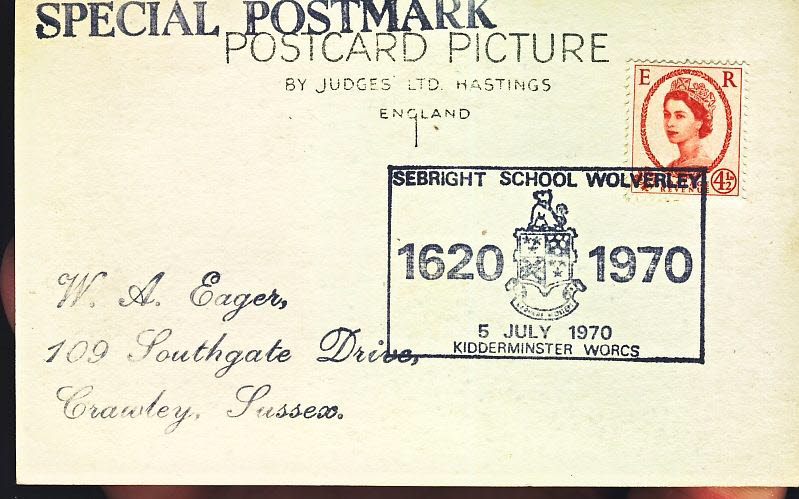 SPECIAL POSTMARK
POSTCARD PICTURE
BY JUDGES' LTD. HASTINGS
ENGLAND
E R
REVENUE 4½
SEBRIGHT SCHOOL WOLVERLEY
1620 1970
5 JULY 1970
KIDDERMINSTER WORCS
W. A. Eager,
109 Southgate Drive,
Crawley, Sussex.